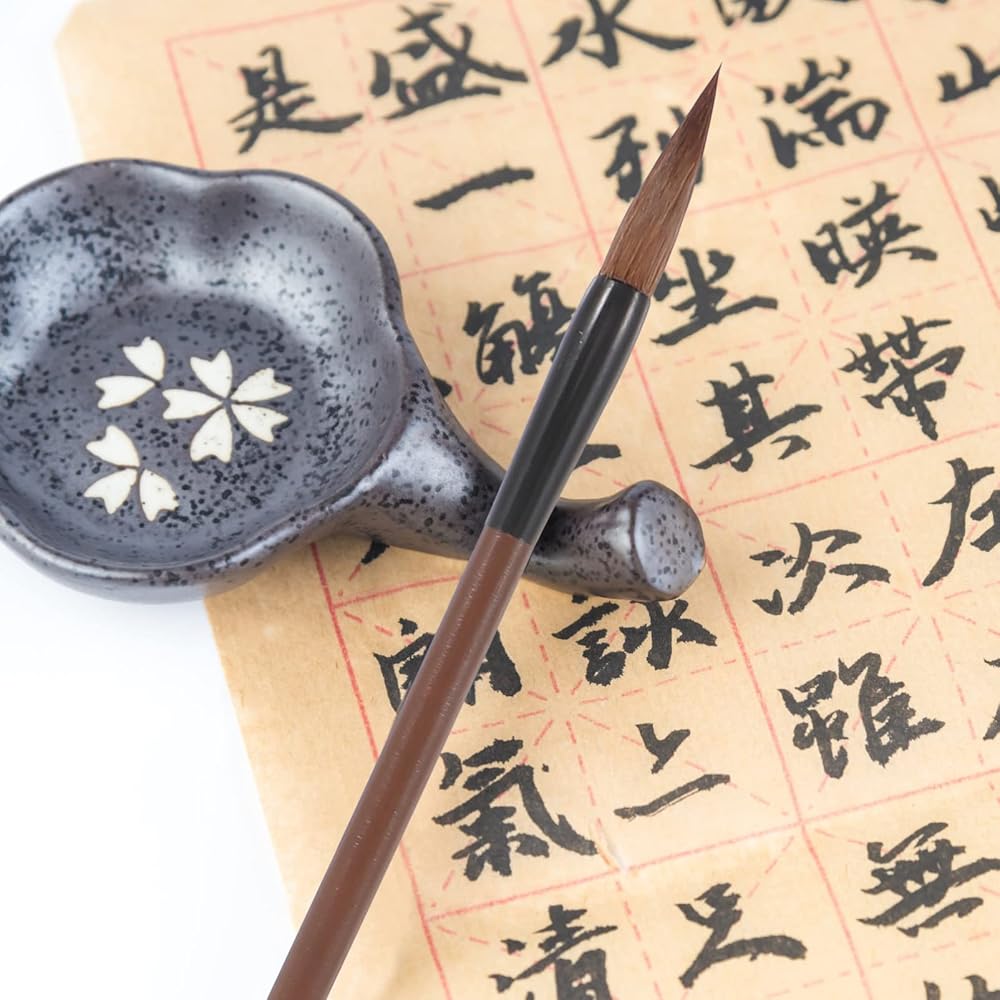 山
湍映帶左
水列坐其次雖無
盛一觴一詠上足
是朗氣清